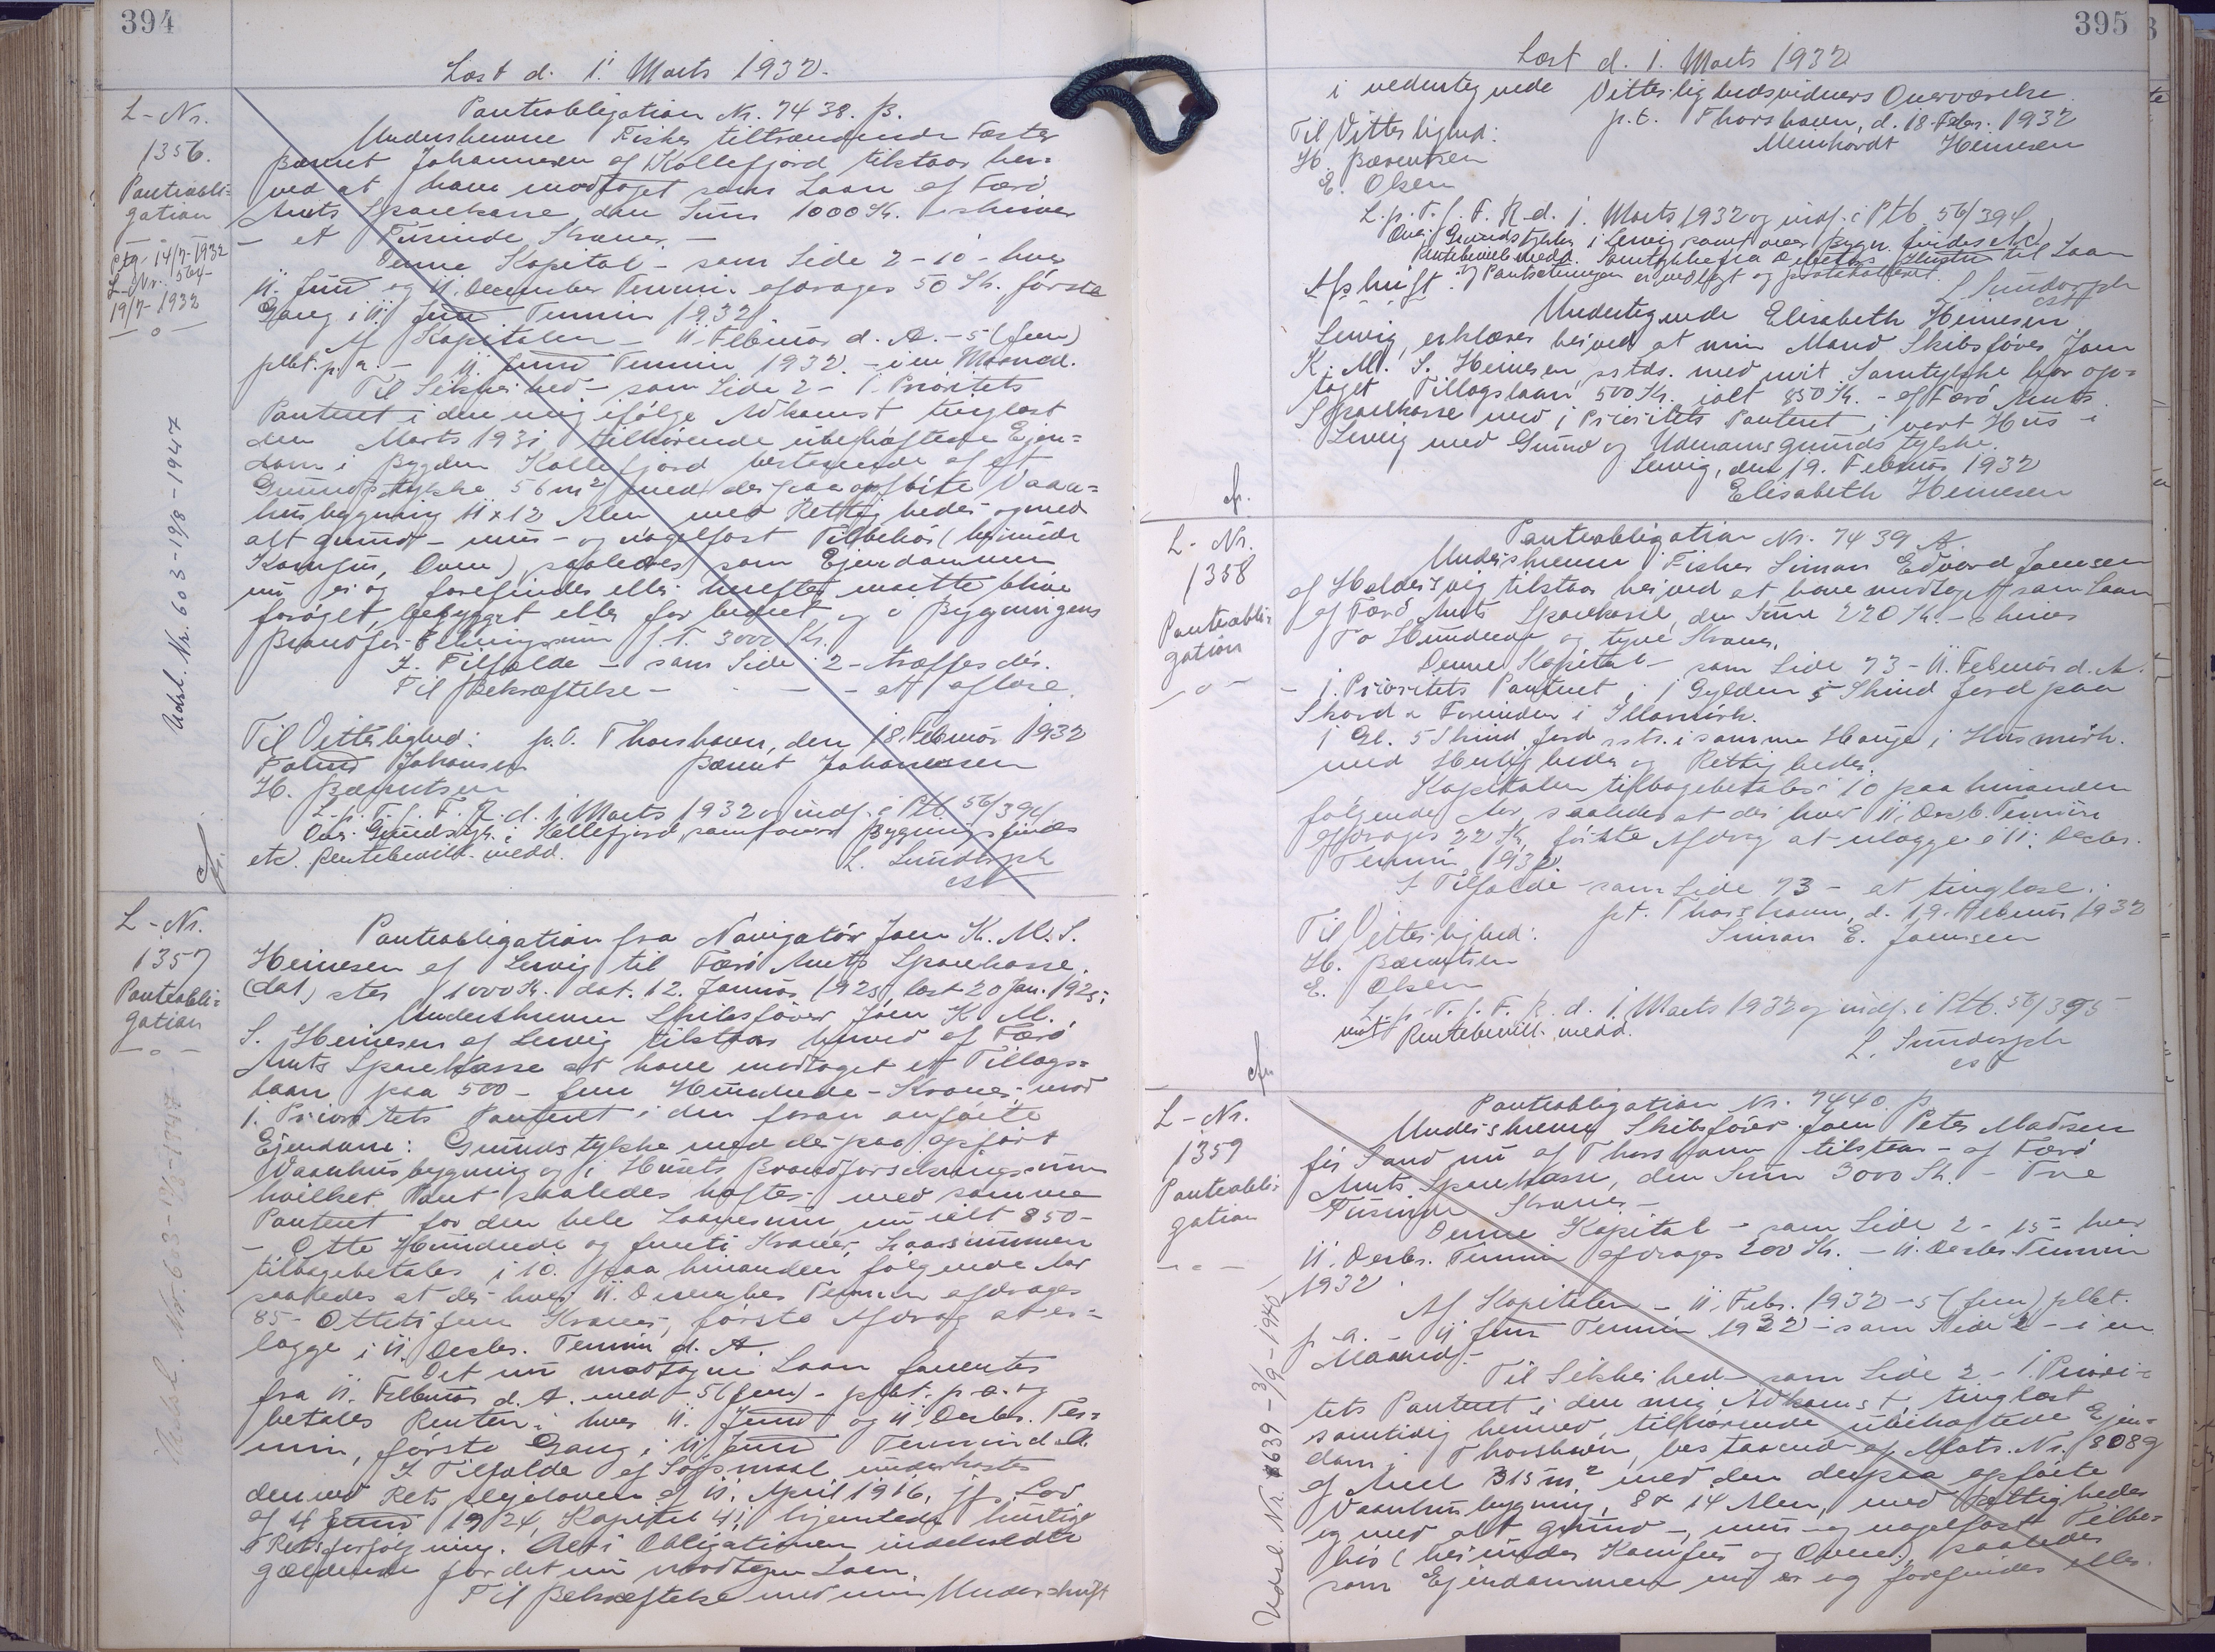 394
Læst d. 1. Marts 1932.
L-Nr.
1356.
Panteobli=
gation
L-Nr. 564
19/7-1932
— o —
Udsl. Nr. 603-19/8-1947
Panteobligation Nr. 7438. B.
Underskrevne Fisker tiltrædende Fæster
Johannesen af Kollefjord tilstaar her=
ved at have modtaget som Laan af Færø
Amts Sparekasse, den Sum 1000 Kr. skriver
— et Tusinde Kroner. —
Denne Kapital — som Side 2-10 — hver
11. Juni og 11. December Termin afdrages 50 Kr. første
Gang i 11. Juni Termin 1932.
Af Kapitalen — 11. Februar d. A. — 5 (fem)
pCt. p. a. — 11. Juni Termin 1932. — i en Maaned.
Til Sikkerhed — som Side 2 — 1. Prioritets
Panteret i den mig ifølge Adkomst tinglæst
den Marts 1931 tilhørende ubehæftede Ejen=
dom i Bygden Kollefjord bestaaende af et
Grundstykke 56 m² med derpaa opførte Vaan=
husbygning 11 x 12 Alen med Rettigheder og med
alt grund- mur- og nagelfast Tilbehør (herunder
Komfur, Ovne), saaledes som Ejendommen
nu er og forefindes eller herefter maatte blive
forøget, bebygget eller forbedret, og i Bygningens
Brandforsikringssum p. T. 3000 Kr.
I Tilfælde — som Side 2 — træffes der.
Til Bekræftelse — — — at aflæse.
Til Vitterlighed: p.t. Thorshavn, den 18. Februar 1932
Johansen Johannesen
H. Bærentsen
L. p. T. f. F. R. d. 1. Marts 1932 og indf. i Ptb. 56/394
Ovr. Grundstyk. i Kollefjord, samt over Bygnings findes
etc. Rentebevill. medd. L. Sundorph
cst
L-Nr.
1357
Panteobli=
gation
— o —
Udsl. Nr. 603-19/8-1947
Panteobligation fra Navigatør Joen K. M. S.
Heinesen af Lervig til Færø Amts Sparekasse.
(dat) stor 1000 Kr. dat. 12. Januar 1925, læst 20 Jan. 1925:
Underskrevne Skibsfører Joen K. M.
S. Heinesen af Lervig tilstaar herved af Færø
Amts Sparekasse at have modtaget et Tillægs=
laan paa 500 — fem Hundrede — Kroner, mod
1. Prioritets Panteret i den foran anførte
Ejendom: Grundstykke med derpaa opført
Vaanhusbygning og i Husets Brandforsikringssum
hvilket Pant saaledes hæfter med samme
Panteret for den hele Laanesum, nu ialt 850 —
— Otte Hundrede og femti Kroner, Laanesummen
tilbagebetales i 10. paa hinanden følgende Aar
saaledes at der hver 11. December Termin afdrages
85 — Ottetifem Kroner, første Afdrag at er=
lægge i 11. Decbr. Termin d. A.
Det nu modtagne Laan forrentes
fra 11. Februar d. A. med — 5 (fem) — pCt. p. a. og
betales Renten i hver 11. Juni og 11. Decbr. Ter=
min, første Gang i 11. Juni Termin d. A.
I Tilfælde af Søgsmaal underkastes
den ved Rets plejeloven af 11. April 1916, jfr. Lov
af 4. Juni 1924, Kapitel 41, hjemlede hurtige
Retsforfølgning. Alt i Obligationen indeholdte
gældende for det nu modtagne Laan.
Til Bekræftelse med min Underskrift
395
Læst d. 1. Marts 1932
i undertegnede Vitterlighedsvidners Overværelse.
p.t. Thorshavn, d. 18. Febr. 1932
Til Vitterlighed: Meinhardt Heinesen
H. Bærentsen
E. Olsen
L. p. T. f. F. R. d. 1. Marts 1932 og indf. i Ptb 56/394
Over Grundstykke i Lervig samt over Bygn. findes etc.
Rentebevill. medd. Samtykke fra Hustru til Laan
Afskrift og Pantsætningen er vedlagt og protokolleret. L Sundorph
cst
Undertegnede Elisabeth Heinesen
Lervig, erklærer herved at min Mand Skibsfører Joen
K. M. S. Heinesen, ssteds. med mit Samtykke har op=
taget Tillægslaan 500 Kr. ialt 850 Kr. — af Færø Amts
Sparekasse med 1 Prioritets Panteret i vort Hus i
Lervig med Grund og Udmarksgrundstykke.
Lervig, den 19. Februar 1932
Elisabeth Heinesen
L-Nr.
1358
Panteobli=
gation
— o —
Panteobligation Nr. 7439 A.
Underskrevne Fisker Simon Edvard Joensen
af Haldersvig tilstaar herved at have modtaget som Laan
af Færø Amts Sparekasse, den Sum 220 Kr. — skriver
To Hundrede og tyve Kroner.
Denne Kapital — som Side 73 — 11. Februar d. A.
— 1. Prioritets Panteret i 1 Gylden 5 Skind Jord paa
1 Gl. 5 Skind Jord sstr. i samme Hauge i Husmørk.
med Herligheder og Rettigheder.
Kapitalen tilbagebetales i 10 paa hinanden
følgende Aar, saaledes at der hver 11. Decb. Termin
afdrages 22 Kr, første Afdrag at erlægge i 11. Decbr.
Termin 1932.
I Tilfælde som Side 73 — at tinglæse.
pt. Thorshavn, d. 19. Februar 1932
Til Vitterlighed: Simon E. Joensen
H. Bærentsen
E. Olsen
L. p. T. f. F. R. d. 1. Marts 1932 og indf. i Ptb. 56/395
Rentebevill. medd.
L. Sundorph
cst
L-Nr.
1359
Panteobli=
gation
— o —
Udsl. Nr. 639 — 3/9-1940
Panteobligation Nr. 7440. B
Underskrevne Skibsfører Joen Peter Madsen
før Sand nu af Thorshavn tilstaar — af Færø
Amts Sparekasse, den Sum 3000 Kr. — Tre
Tusinde Kroner. —
Denne Kapital — som Side 2 — 15 — hver
11. Decbr. Termin afdrages 200 Kr. — 11. Decbr. Termin
1932.
Af Kapitalen — 11. Febr. 1932 — 5 (fem) pCt.
p. a. — 11 Juni Termin 1932 — som Side 2 — i en
Maaned. —
Til Sikkerhed — som Side 2 — 1. Priori=
tets Panteret i den mig Adkomst, tinglæst
samtidig hermed, tilhørende ubehæftede Ejen=
dom i Thorshavn, bestaaende af Matr. Nr. 808g
af Areal 315 m² med den derpaa opførte
Vaanhusbygning, 8 x 14 Alen, med Rettigheder
og med alt grund-, mur- og nagelfast Tilbe=
hør (herunder Komfur og Ovne), saaledes
som Ejendommen nu er og forefindes eller